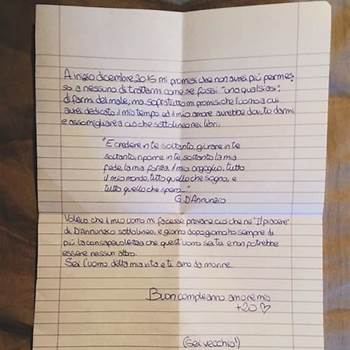 A inizio dicembre 2015 mi promisi che non avrei più permes-
so a nessuno di trattarmi come se fossi "una qualsiasi";
di farmi del male, ma soprattutto mi promisi che l'uomo a cui
avrei dedicato il mio tempo ed il mio amore avrebbe dovuto darmi
e assomigliare a ciò che sottolineo nei libri.
"E credere in te soltanto, giurare in te
soltanto, riporre in te soltanto la mia
fede, la mia forza, il mio orgoglio, tutto
il mio mondo, tutto quello che sogno, e
tutto quello che spero..."
G. D'Annunzio
Volevo che il mio uomo mi facesse provare ciò che ne "Il piacere"
di D'Annunzio sottolineo, e giorno dopo giorno ho sempre di
più la consapevolezza che quest'uomo sei tu e non potrebbe
essere nessun altro.
Sei l'uomo della mia vita e ti amo da morire.
Buon compleanno amore mio
+20 ♡
(Sei vecchio!)